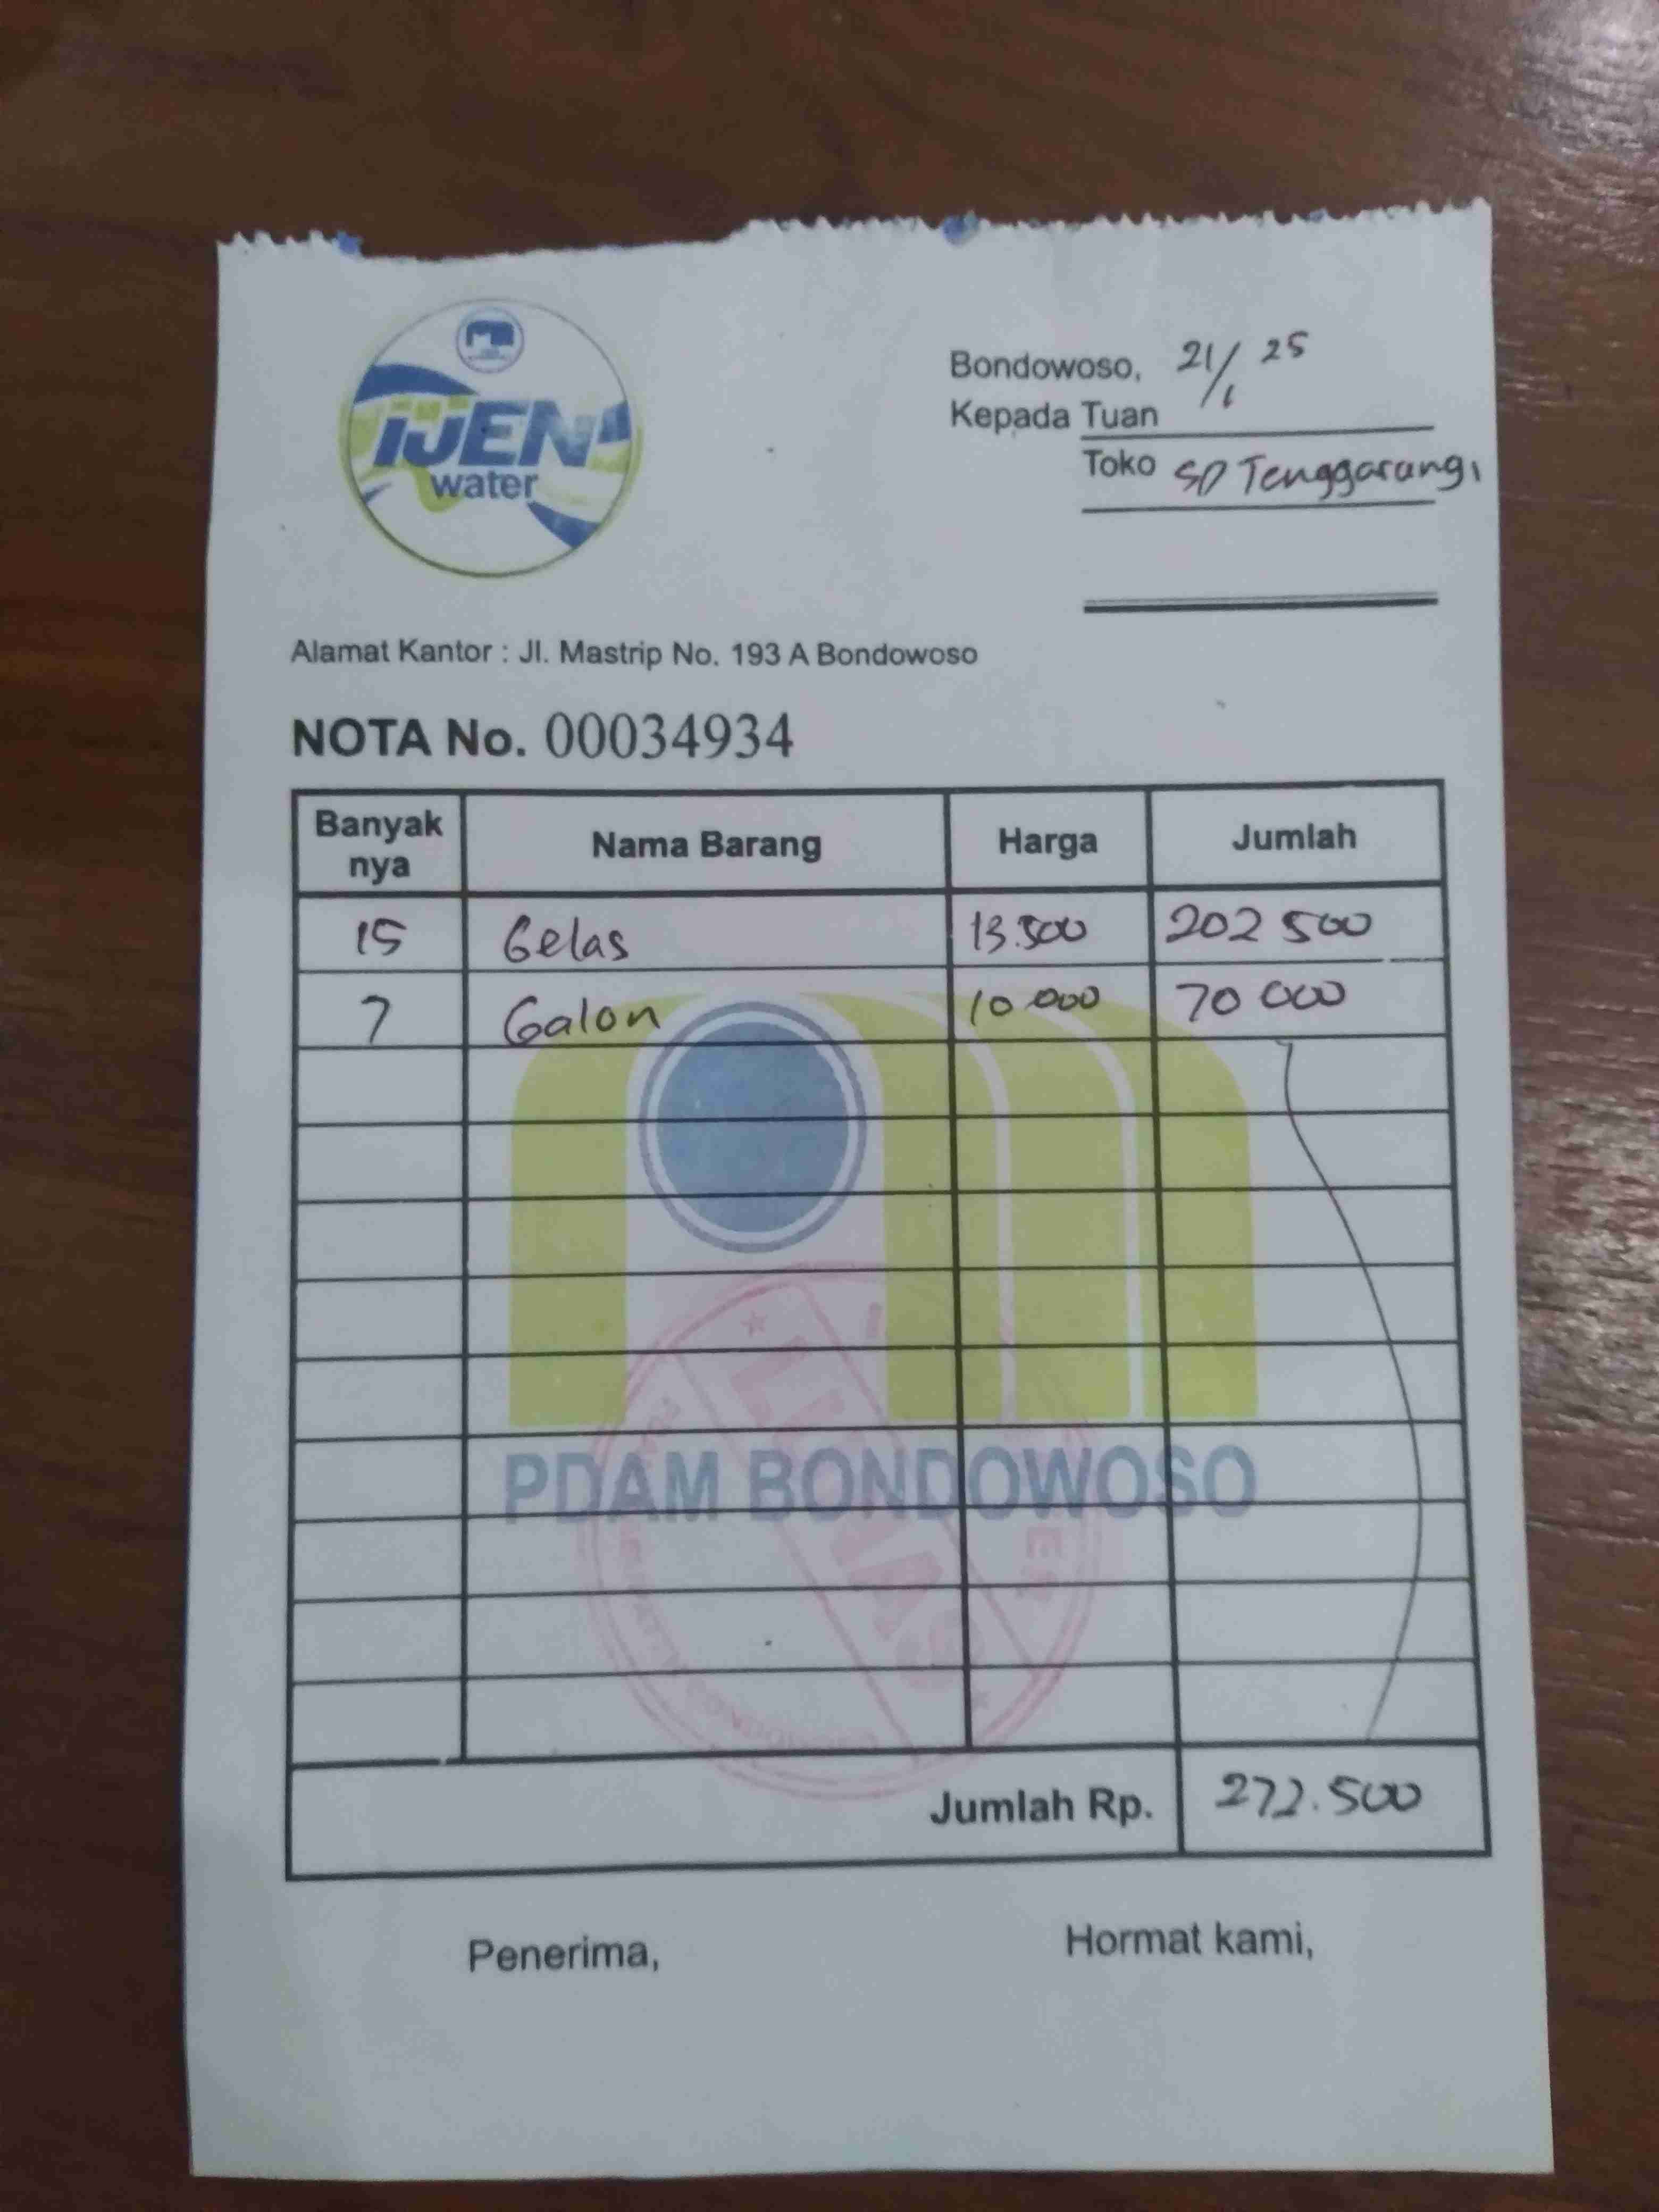 iJEN
water
Bondowoso, 21/1 25
Kepada Tuan
Toko SD Tenggarang 1
Alamat Kantor : Jl. Mastrip No. 193 A Bondowoso
NOTA No. 00034934
Banyak nya Nama Barang Harga Jumlah
15 Gelas 13.500 202 500
7 Galon 10 000 70 000
PDAM BONDOWOSO
LUNAS
Jumlah Rp. 272.500
Penerima, Hormat kami,